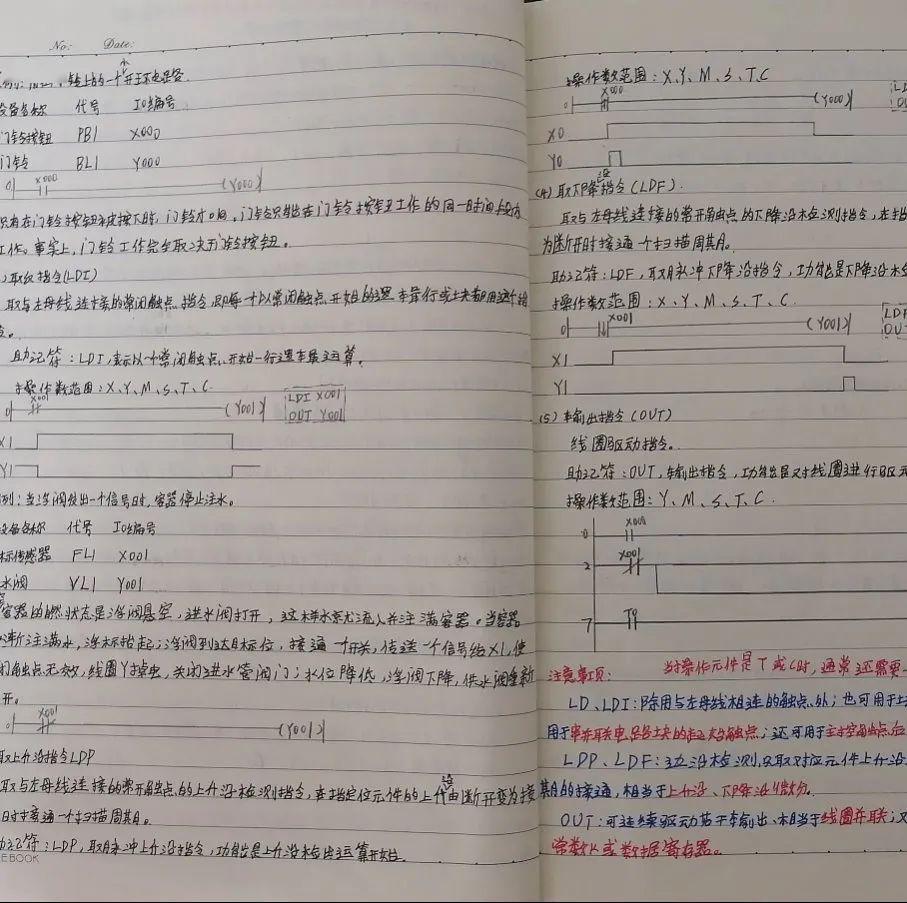 No: Date:
铃上的一个开环电路.
设备名称 代号 IO编号
门铃按钮 PB1 X000
门铃 BL1 Y000
0 X000 (Y000)
只有在门铃按钮被按下时,门铃才响.门铃只能在门铃按钮工作的同一时间段内
工作.事实上,门铃工作完全取决于门铃按钮。
取反指令(LDI)
取与左母线连接的常闭触点指令,即每一个以常闭触点开始的逻辑行或块都用这个指
助记符:LDI,表示以一个常闭触点开始一行逻辑运算.
操作数范围:X、Y、M、S、T、C.
0 X001 (Y001) LDI X001
OUT Y001
X1
Y1
例:当浮阀发出一个信号时,容器停止注水.
设备名称 代号 IO编号
标传感器 FL1 X001
水阀 VL1 Y001
容器的燃状态是浮阀悬空,进水阀打开,这样水就允流入并注满容器。当容器
渐注满水,浮标抬起;浮阀到达目标位,接通一个开关,传送一个信号给X1,使
闭触点无效,线圈Y掉电,关闭进水管阀门;水位降低,浮阀下降,供水阀重新
开.
0 X001 (Y001)
取上升沿指令LDP
取与左母线连接的常开触点的上升沿检测指令,在指定位元件的上升沿由断开变为接
时接通一个扫描周期.
助记符:LDP,取脉冲上升沿指令,功能是上升沿检出运算开始.
EBOOK
操作数范围:X、Y、M、S、T、C
0 X000 (Y000)
X0
Y0
(4)取下降沿指令(LDF).
取与左母线连接的常开触点的下降沿检测指令,在指
为断开时接通一个扫描周期.
助记符:LDF,取脉冲下降沿指令,功能是下降沿
操作数范围:X、Y、M、S、T、C.
0 X001 (Y001) LDF
X1
Y1
(5)输出指令(OUT)
线圈驱动指令.
助记符:OUT,输出指令,功能是对线圈进行驱动
操作数范围:Y、M、S、T、C.
0 X000
2 X001
7 T0
注意事项: 当操作元件是T或C时,通常还需要
LD、LDI:除用与左母线相连的触点外;也可用于
用于串并联电路块的起始触点;还可用于主控触点后
LDP、LDF:边沿检测,只取对应元件上升沿
期的接通,相当于上升沿、下降沿微分.
OUT:可连续驱动若干本输出,相当于线圈并联;
常数K或数据寄存器。